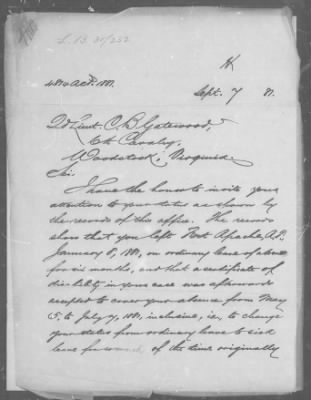 L.B. 30/252
K
4810 A.C.P. 1881.
Sept. 7 81.
2d Lieut. C. B. Gatewood,
6th Cavalry,
Woodstock, Virginia.
Sir:
I have the honor to invite your
attention to your status as shown by
the records of this office. The records
show that you left Fort Apache, A.T.
January 6, 1881, on ordinary leave of absence
for six months, and that a certificate of
disability in your case was afterwards
accepted to cover your absence from May
5, to July 4, 1881, inclusive, i.e., to change
your status from ordinary leave to sick
leave for of the time originally